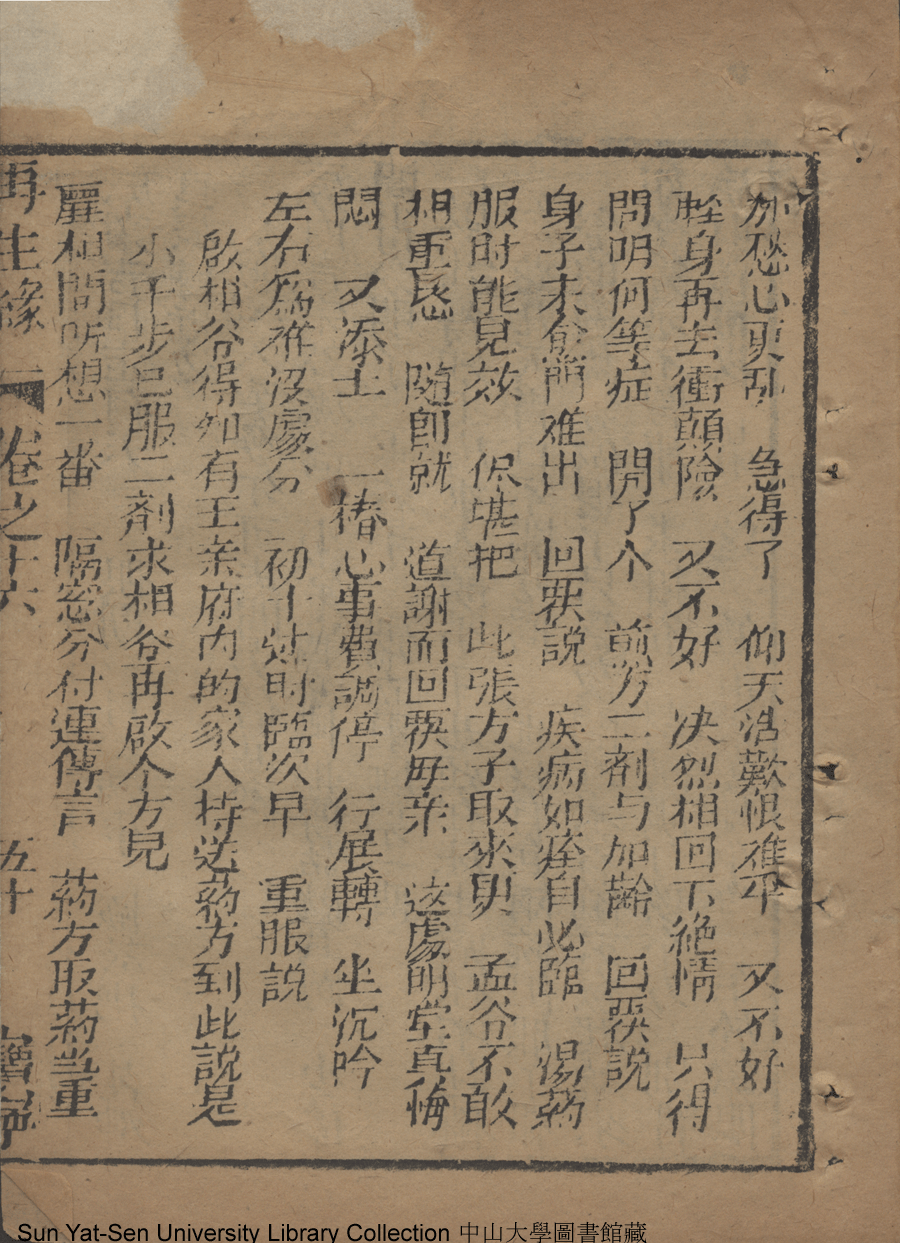 加愁心更乱　急得了　仰天浩歎恨难平　又不好
輕身再去衝顛險　又不好　决烈相回下絶情　只得
問明何等症　開了个　煎方二剤与加齡　回覄說
身子未愈門难出　回覄說　疾病如痊自必臨　湯葯
服时能見效　伬堪把　此張方子取來則　孟谷不敢
相重恳　随即就　道謝而回覄毋亲　这處明堂真悔
悶　又添土　一樁心事費調停　行展轉　坐沉吟
左右爲难沒處分　初十処时臨次早　重服說
啟相谷得知有王亲府内的家人持送葯方到此說是
小千歩已服二剤求相谷再啟个方見
麗相間听想一番　隔窓分付連傳言　葯方取葯当重
再生緣　卷之十六　五十　寧
Sun Yat-Sen University Library Collection 中山大學圖書館藏